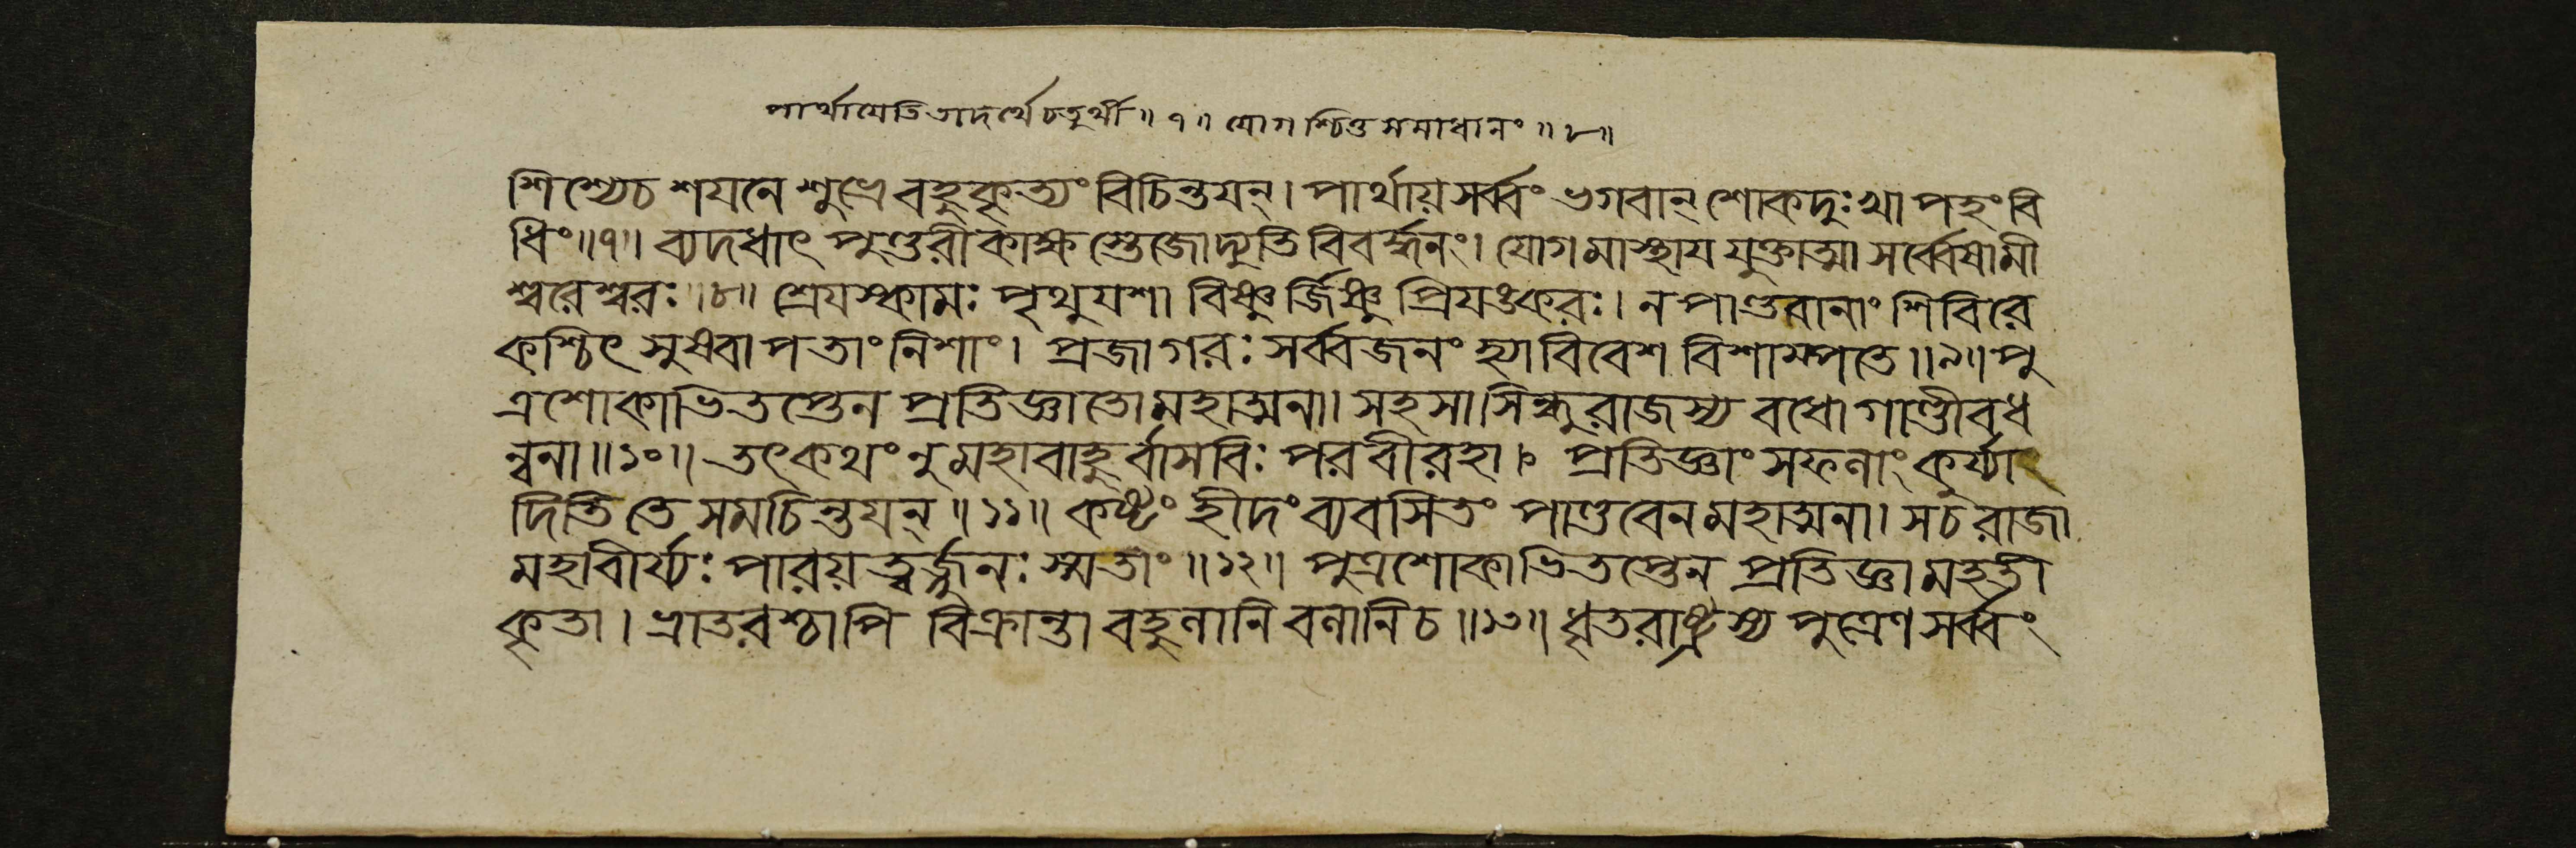 পার্থায়েতি তাদর্থ্যে চতুর্থী ॥ ৭ ॥ যোগশ্চিত্তসমাধানং ॥ ৮ ॥
শিশ্যেচ শযনে শুভ্রে বহুকৃত্যং বিচিন্তযন্। পার্থায় সর্ব্বং ভগবান্ শোকদুঃখাপহং বি
ধিং ॥ ৭ ॥ ব্যদধাৎ পুণ্ডরীকাক্ষ স্তেজোদ্যুতি বিবর্দ্ধনং। যোগমাস্থায যুক্তাত্মা সর্ব্বেষামী
শ্বরেশ্বরঃ ॥ ৮ ॥ শ্রেযস্কামঃ পৃথুযশা বিষ্ণু র্জিষ্ণু প্রিযঙ্করঃ। ন পাণ্ডবানাং শিবিরে
কশ্চিৎ সুষ্বাপ তাং নিশাং। প্রজাগরঃ সর্ব্বজনং হ্যাবিবেশ বিশাম্পতে ॥ ৯ ॥ পু
ত্রশোকাভিতপ্তেন প্রতিজ্ঞাতো মহাত্মনা। সহসা সিন্ধুরাজস্য বধো গাণ্ডীবধ
ন্বনা ॥ ১০ ॥ তৎকথং নু মহাবাহু র্বাসবিঃ পরবীরহা। প্রতিজ্ঞাং সফলাং কুর্য্যা
দিতি তে সমচিন্তযন্ ॥ ১১ ॥ কষ্টং হীদং ব্যবসিতং পাণ্ডবেন মহাত্মনা। স চ রাজা
মহাবীর্য্যঃ পারয়ত্বর্জ্জুনঃ স্মতাং ॥ ১২ ॥ পুত্রশোকাভিতপ্তেন প্রতিজ্ঞা মহতী
কৃতা। ভ্রাতরশ্চাপি বিক্রান্তা বহুলানি বলানি চ ॥ ১৩ ॥ ধৃতরাষ্ট্রস্য পুত্রেণ সর্ব্বং